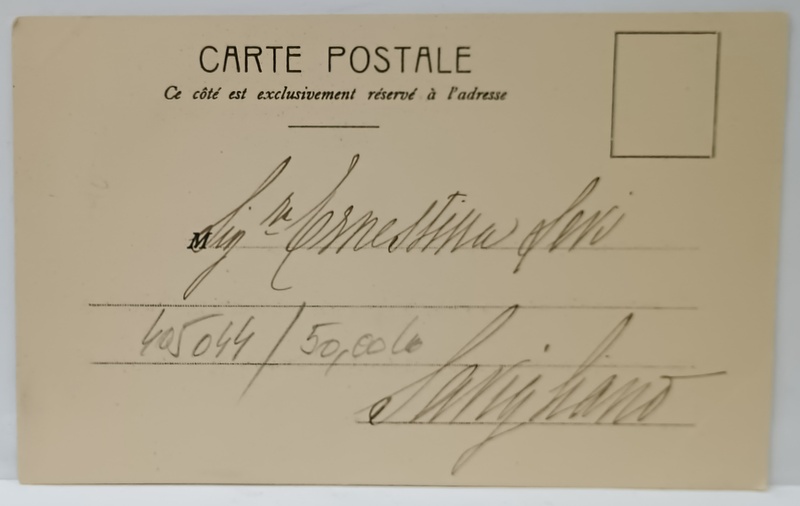 CARTE POSTALE
Ce côté est exclusivement réservé à l'adresse
M Sig.ra Ernestina Levi
405044 / 50,00
Savigliano